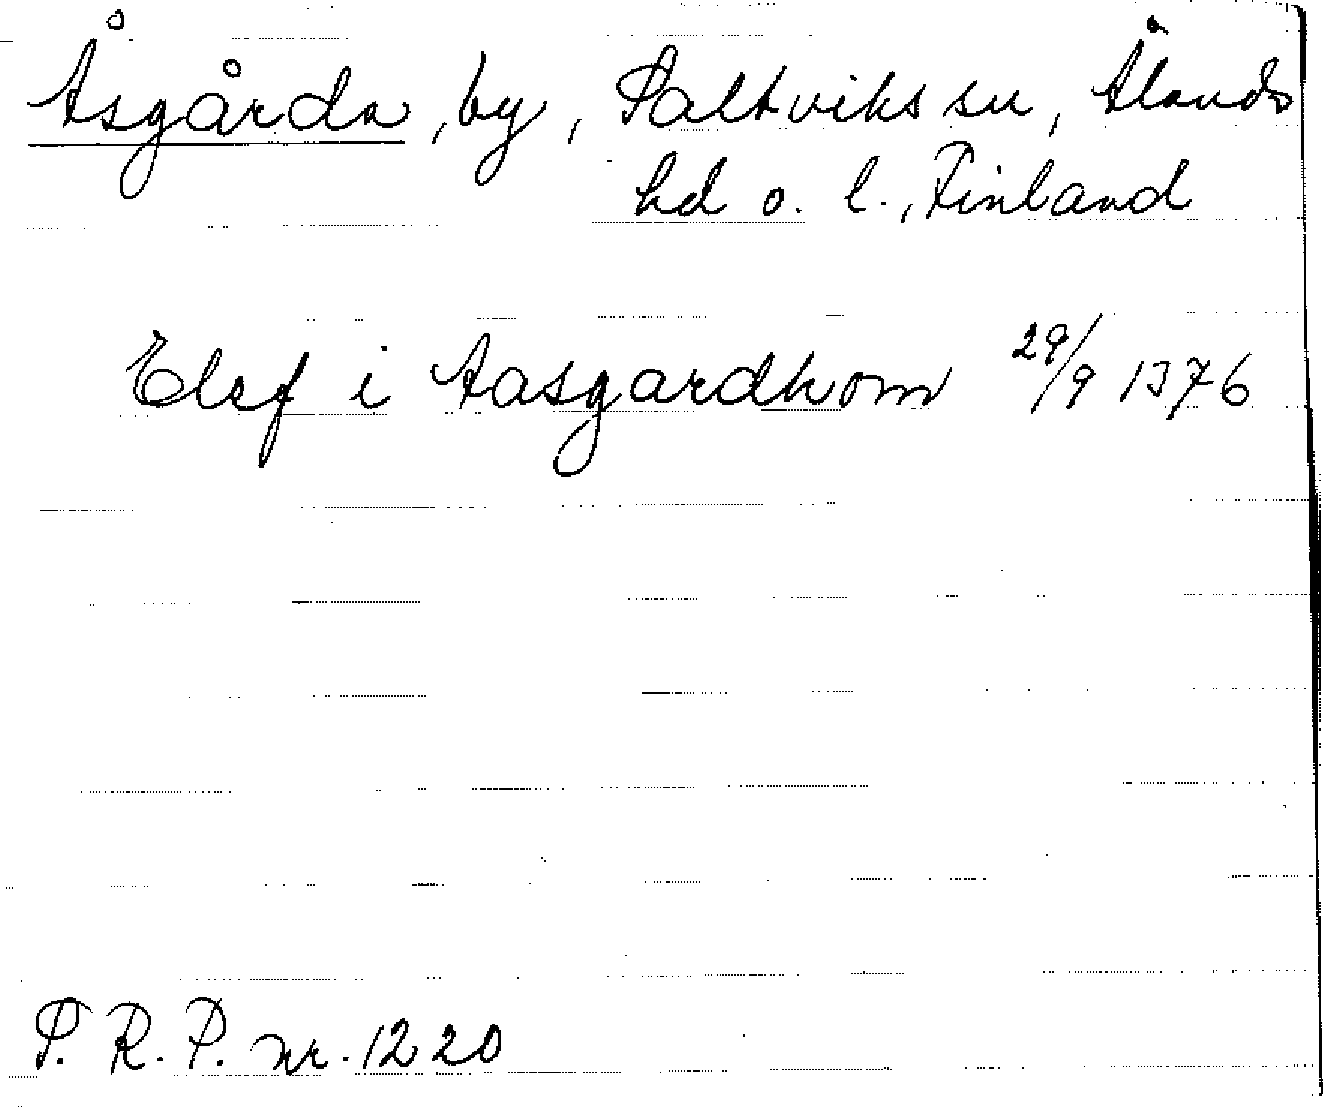 Åsgårda, by, Saltviks sn, Ålands
hd o. l., Finland
Elef i Aasgardhom 29/9 1376
S. R. P. nr. 1220